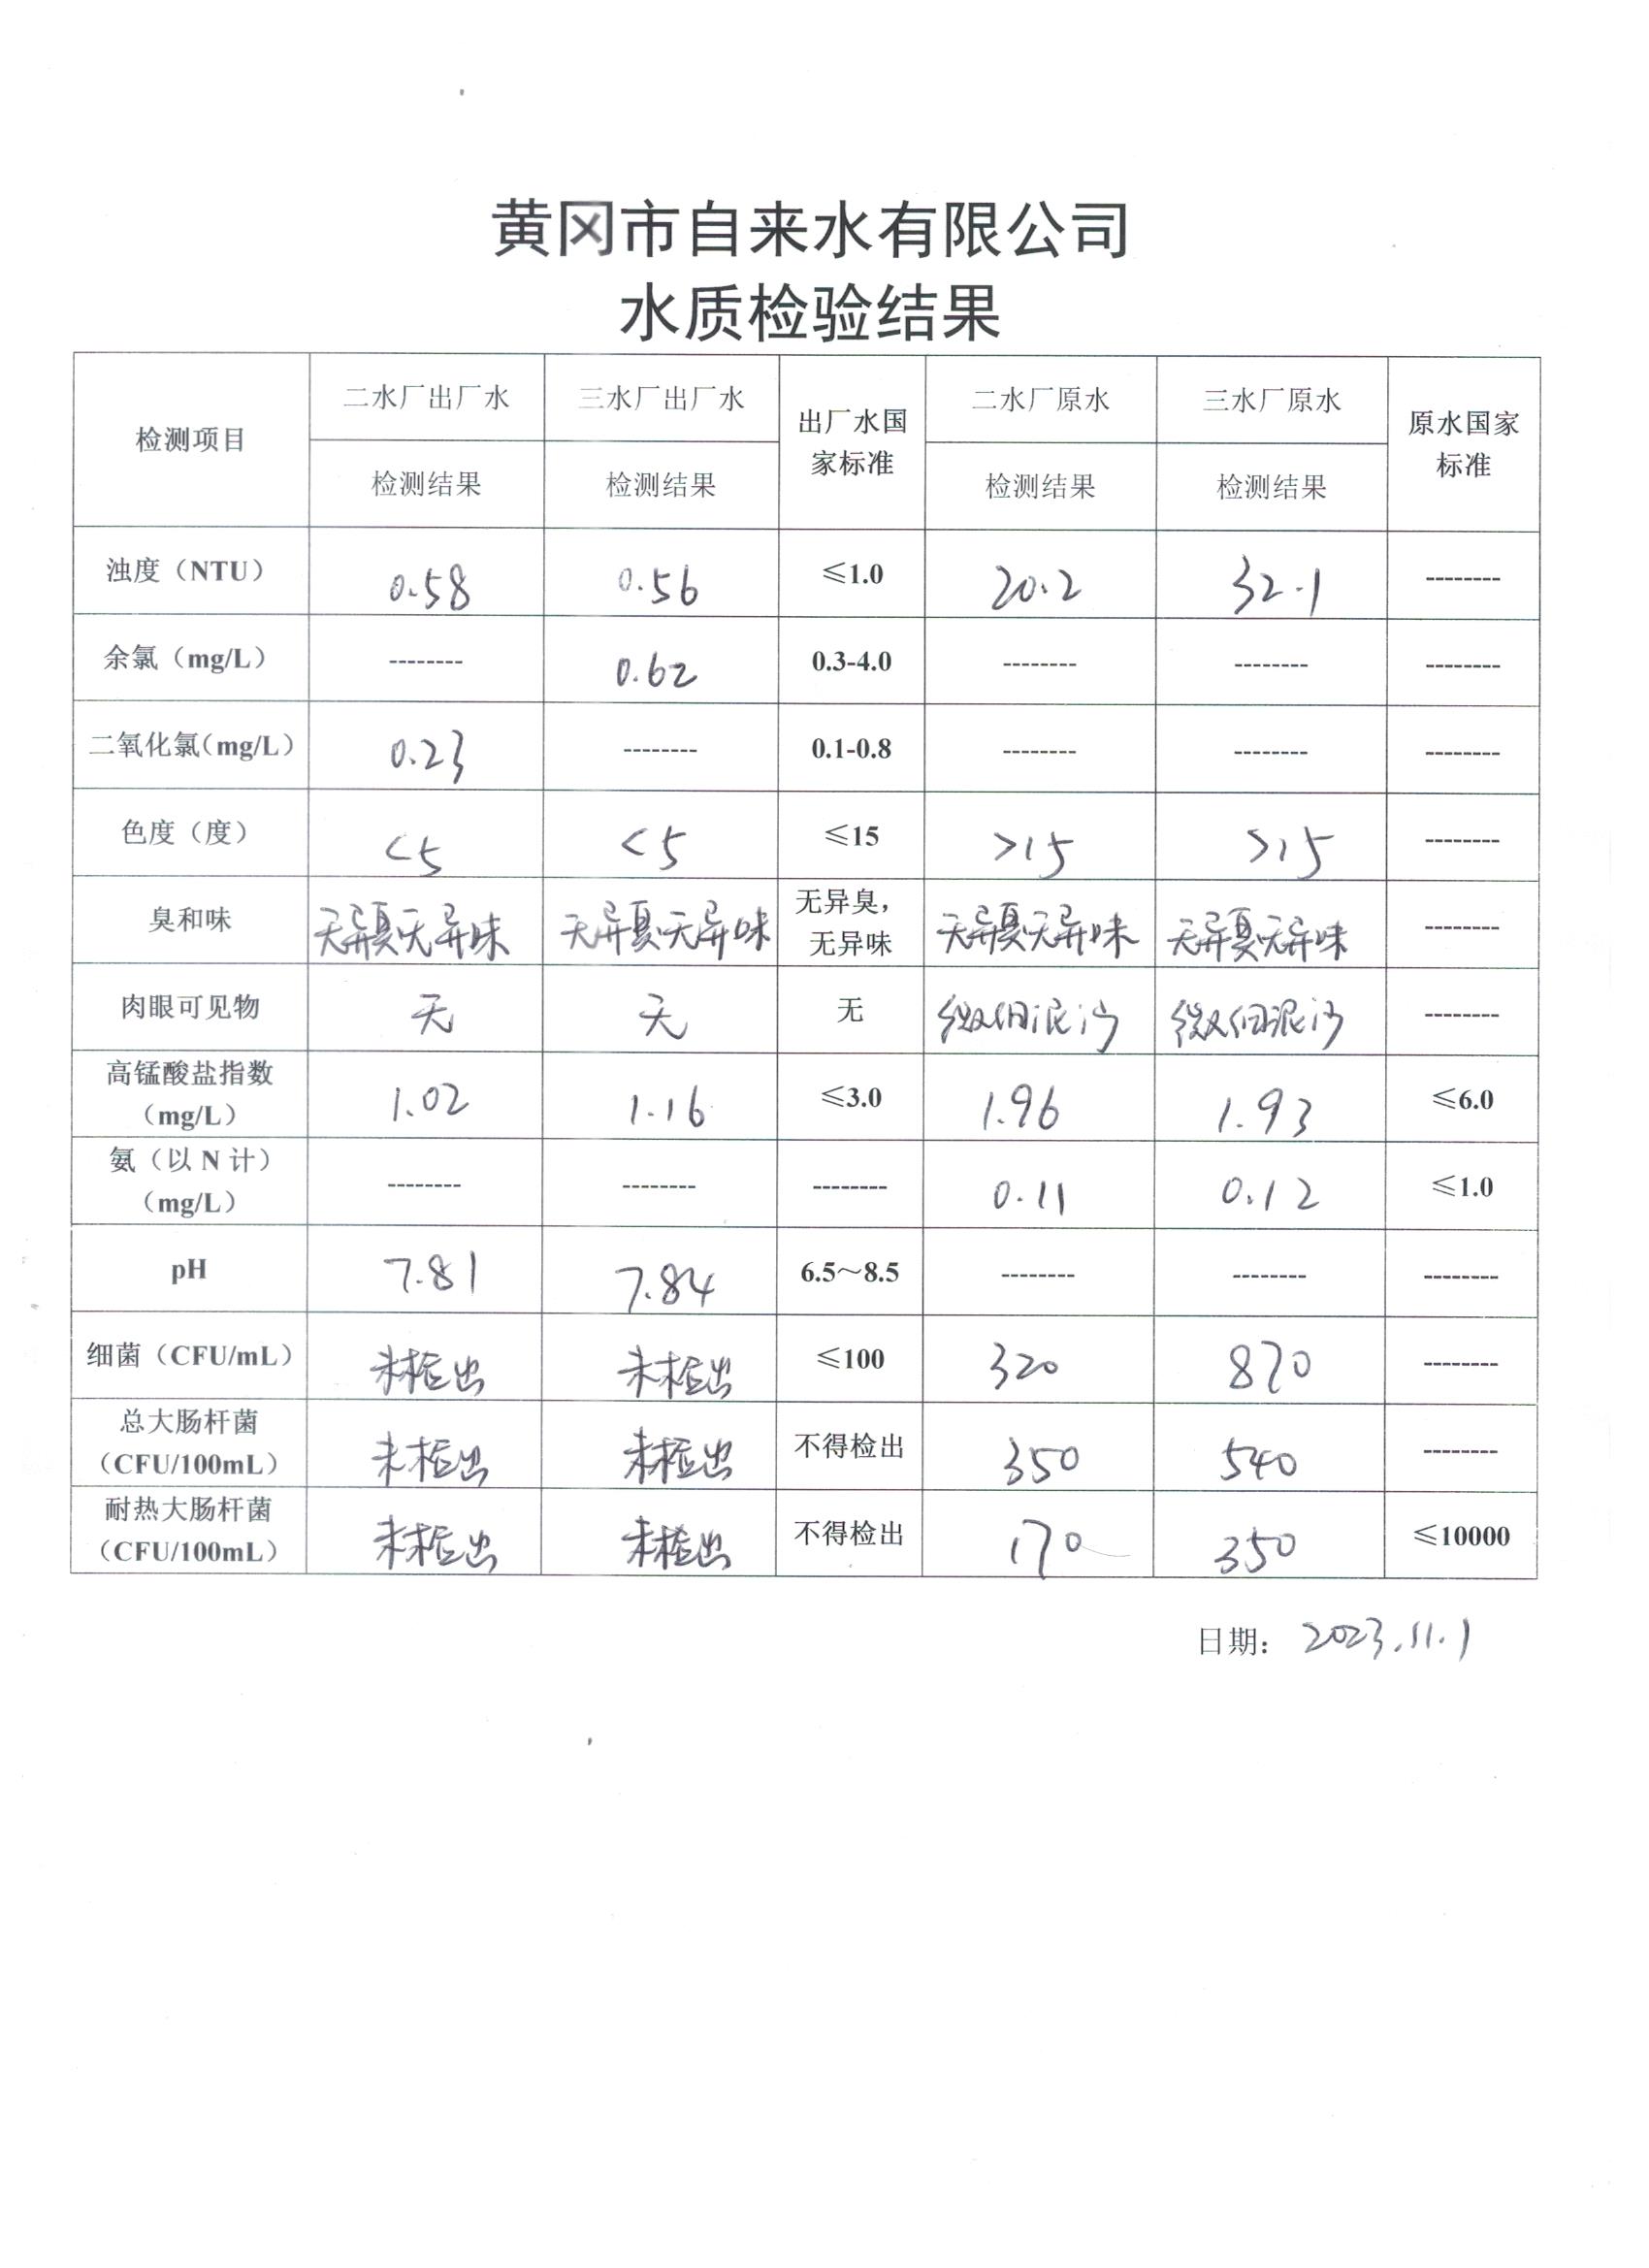 黄冈市自来水有限公司
水质检验结果
检测项目 二水厂出厂水 三水厂出厂水 出厂水国家标准 二水厂原水 三水厂原水 原水国家标准
检测结果 检测结果 检测结果 检测结果
浊度（NTU） 0.58 0.56 ≤1.0 20.2 32.1 --------
余氯（mg/L） -------- 0.62 0.3-4.0 -------- -------- --------
二氧化氯（mg/L） 0.23 -------- 0.1-0.8 -------- -------- --------
色度（度） <5 <5 ≤15 >15 >15 --------
臭和味 无异臭无异味 无异臭无异味 无异臭，无异味 无异臭无异味 无异臭无异味 --------
肉眼可见物 无 无 无 微细泥沙 微细泥沙 --------
高锰酸盐指数（mg/L） 1.02 1.16 ≤3.0 1.96 1.93 ≤6.0
氨（以 N 计）（mg/L） -------- -------- -------- 0.11 0.12 ≤1.0
pH 7.81 7.84 6.5～8.5 -------- -------- --------
细菌（CFU/mL） 未检出 未检出 ≤100 320 870 --------
总大肠杆菌（CFU/100mL） 未检出 未检出 不得检出 350 540 --------
耐热大肠杆菌（CFU/100mL） 未检出 未检出 不得检出 170 350 ≤10000
日期： 2023.11.1